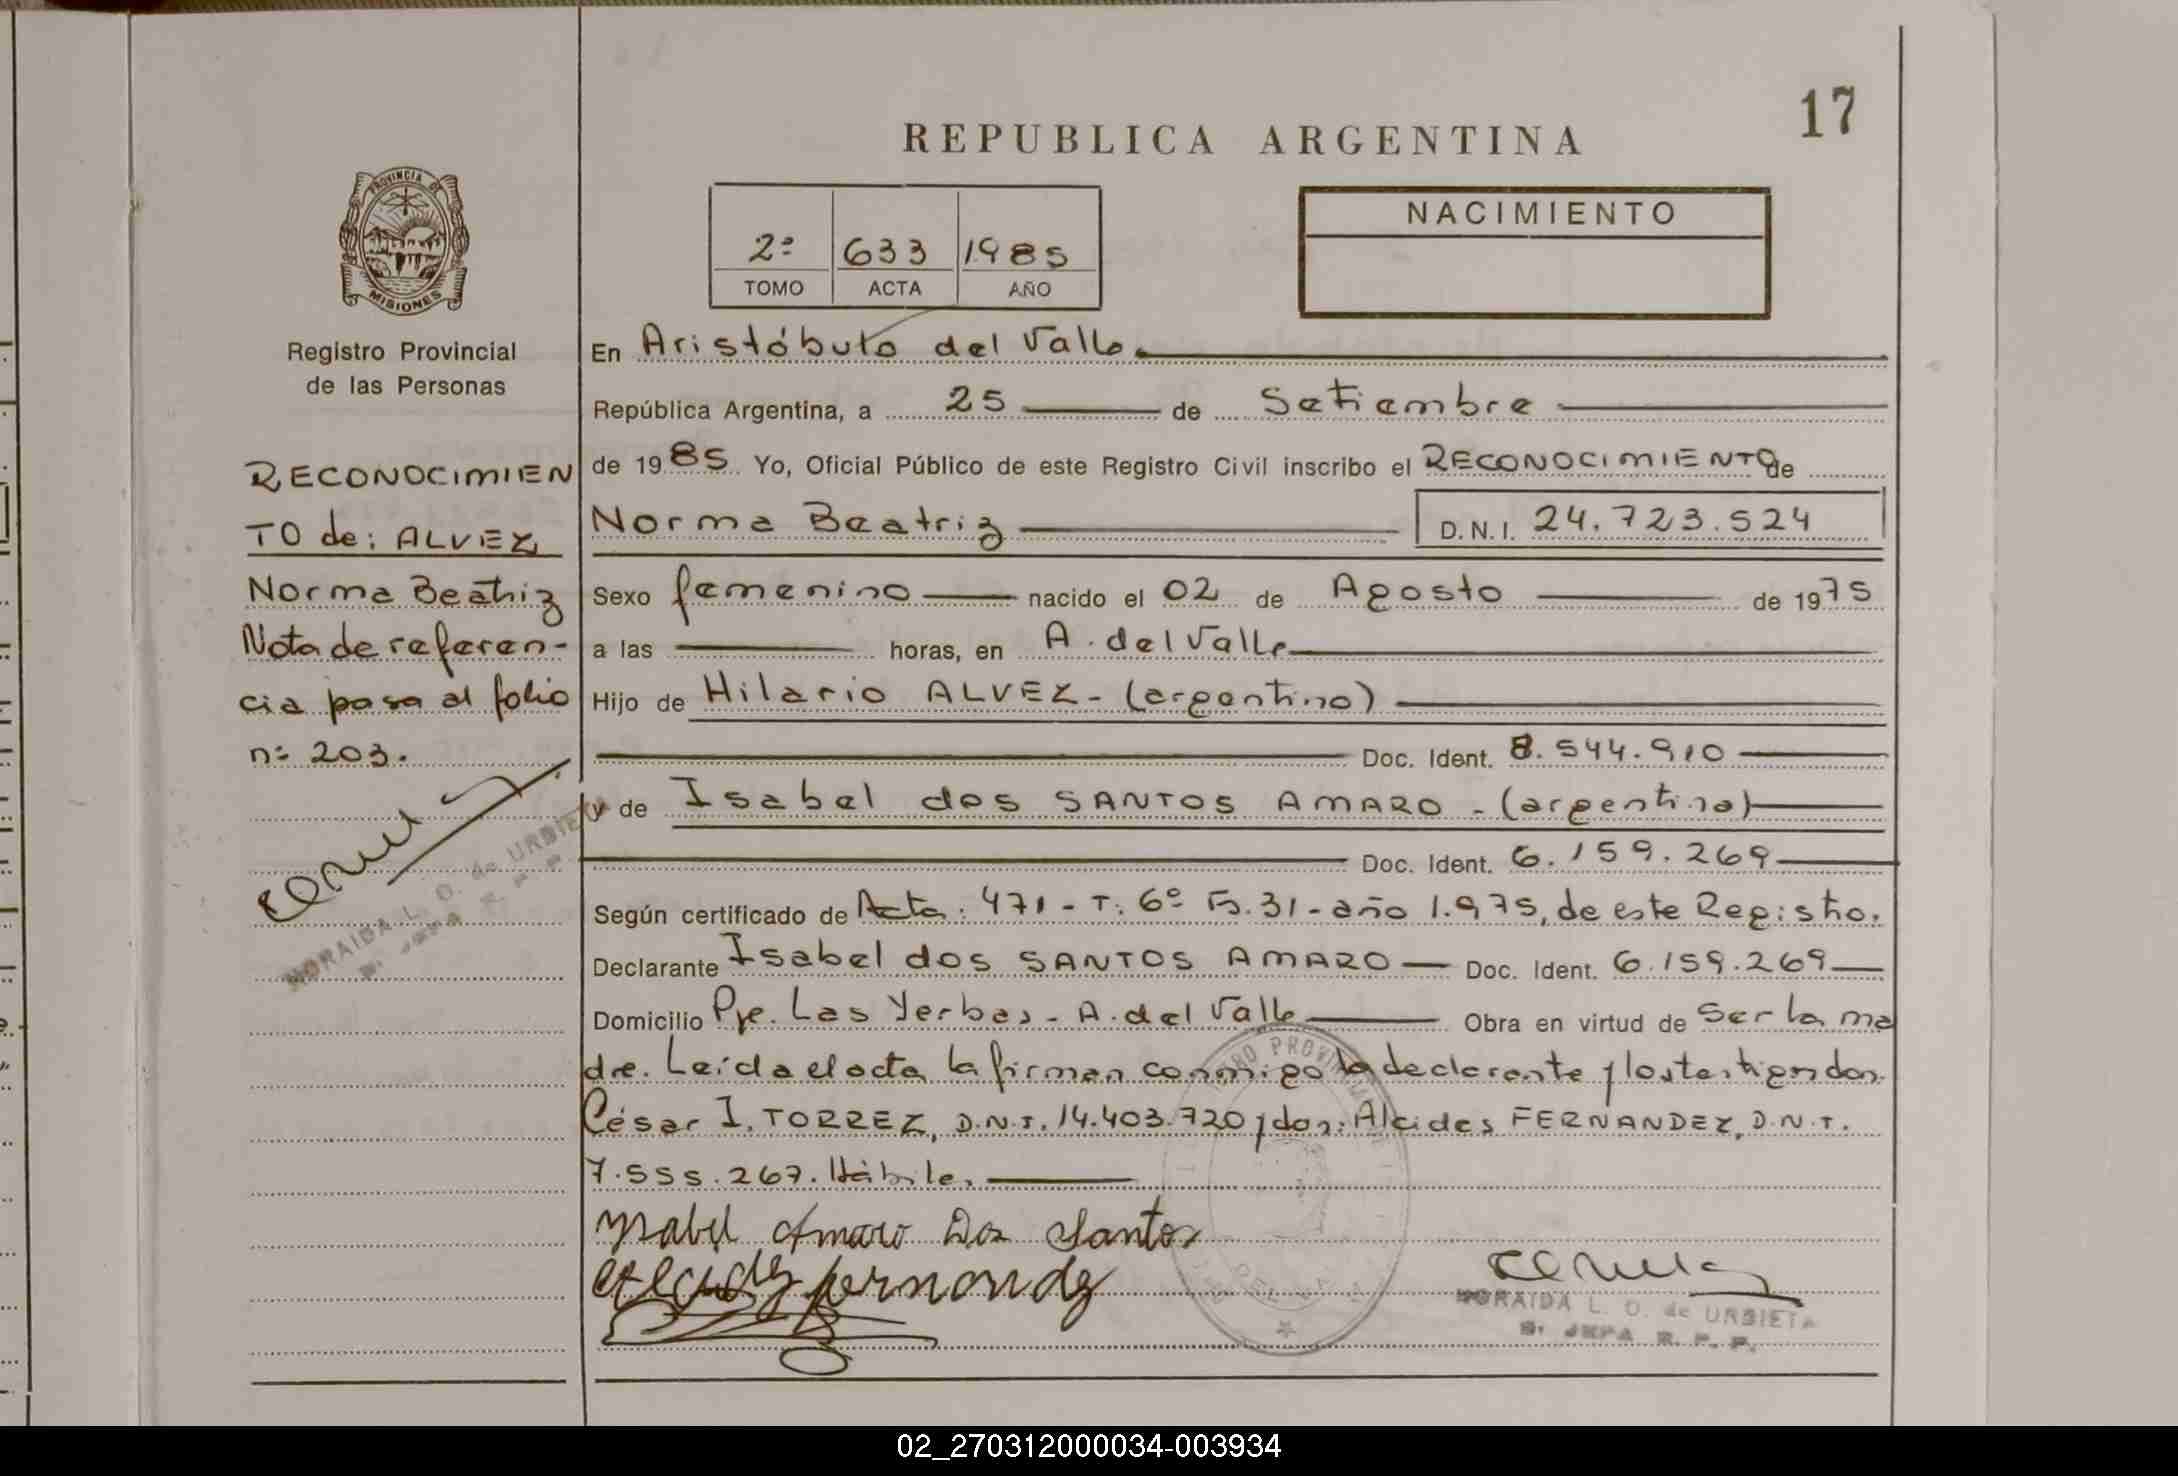 17
REPUBLICA ARGENTINA
PROVINCIA DE
MISIONES
2º 633 1985
TOMO ACTA AÑO
NACIMIENTO
Registro Provincial
de las Personas
RECONOCIMIEN
TO de: ALVEZ,
Norma Beatriz
Nota de referen-
cia pasa al folio
nº 203.
NORAIDA L. O. de URBIETA
En Aristóbulo del Valle.
República Argentina, a 25 de Setiembre
de 1985 Yo, Oficial Público de este Registro Civil inscribo el RECONOCIMIENTO de
Norma Beatriz D.N.I. 24.723.524
Sexo femenino nacido el 02 de Agosto de 1975
a las horas, en A. del Valle
Hijo de Hilario ALVEZ - (argentino)
Doc. Ident. 8.544.910
y de Isabel dos SANTOS AMARO - (argentina)
Doc. Ident. 6.159.269
Según certificado de Acta: 471 - T: 6º Fº.31 - año 1.975, de este Registro.
Declarante Isabel dos SANTOS AMARO Doc. Ident. 6.159.269
Domicilio Pje. Las Yerbas - A. del Valle Obra en virtud de Ser la ma
dre. Leída el acta la firman conmigo la declarante y los testigos don
César I. TORREZ, D.N.I. 14.403.720 y don: Alcides FERNANDEZ, D.N.I.
7.555.267. Hábiles.
Ysabel Amaro Dos Santos
Alcides Fernandez
NORAIDA L. O. de URBIETA
JEFA R. P. P.
02_270312000034-003934